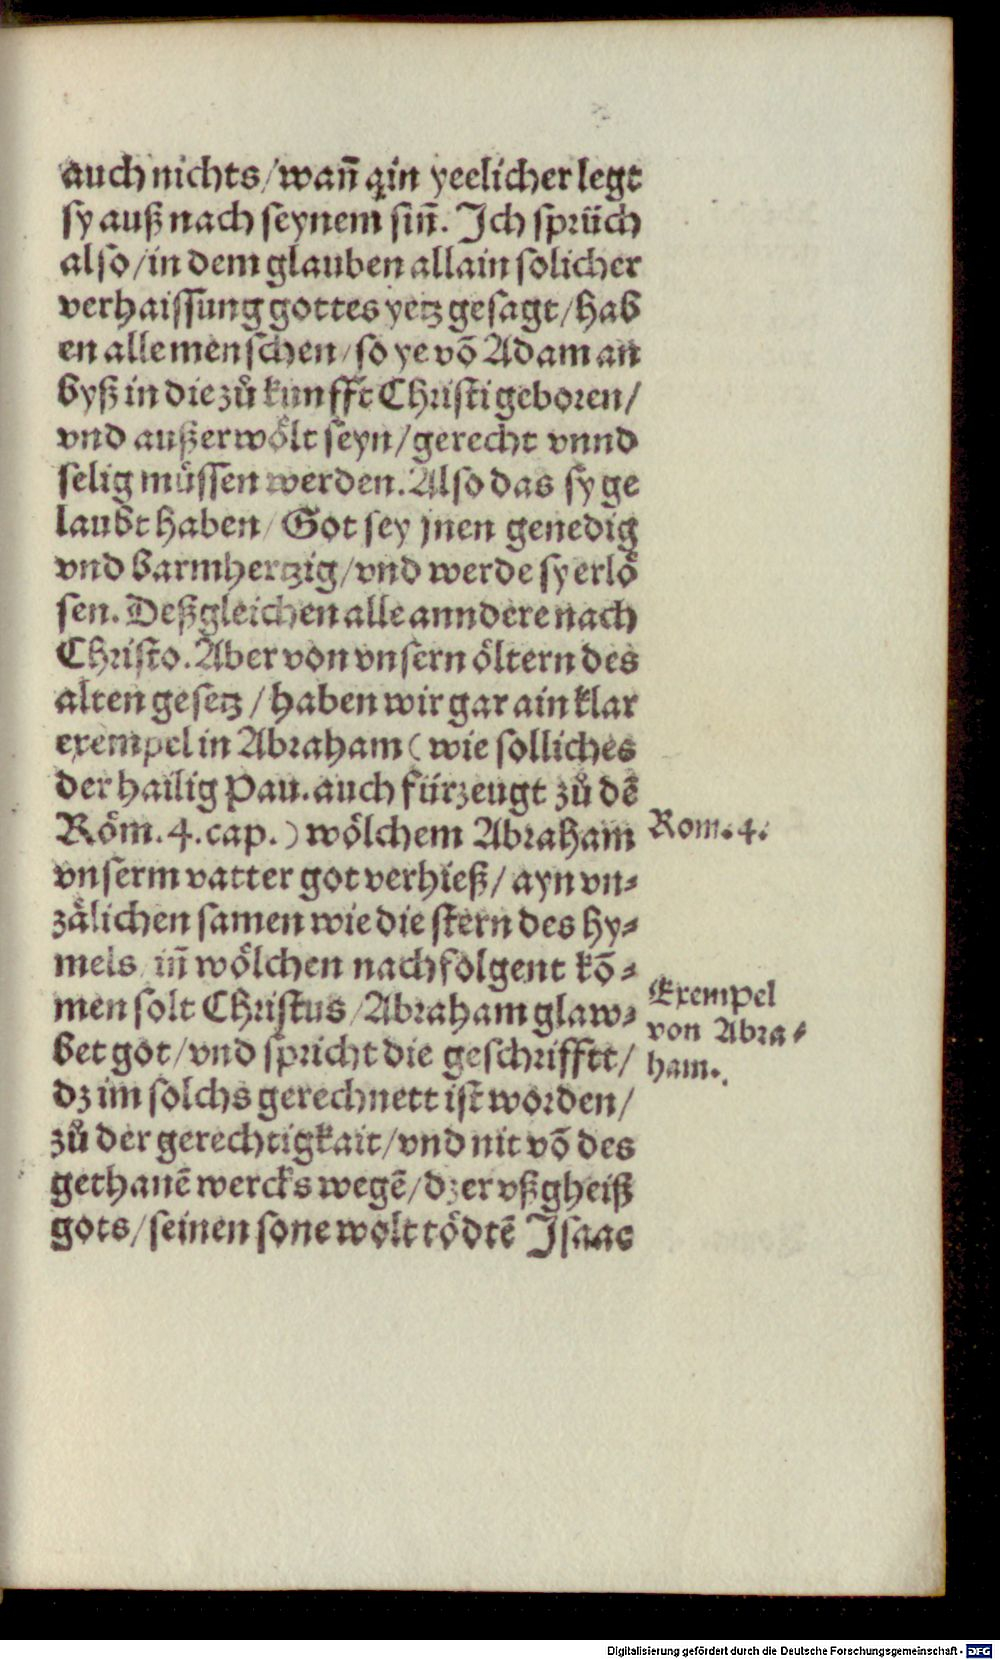 auch nichts/wañ ain yeelicher legt
sy auß nach seynem siñ. Ich sprüch
also/in dem glauben allain solicher
verhaissung gottes yetz gesagt/hab
en alle menschen/so ye võ Adam an
byß in die zů kunfft Christi geboren/
vnd außerwoͤlt seyn/gerecht vnnd
selig muͤssen werden. Also das sy ge
laubt haben/Got sey jnen genedig
vnd barmhertzig/vnd werde sy erloͤ
sen. Deßgleichen alle anndere nach
Christo. Aber von vnsern oͤltern des
alten gesetz/haben wir gar ain klar
exempel in Abraham (wie solliches
der hailig Pau. auch fürzeugt zů dẽ
Roͤm. 4. cap.) woͤlchem Abraham
Rom. 4.
vnserm vatter got verhieß/ayn vn⸗
zaͤlichen samen wie die stern des hy⸗
mels/iñ woͤlchen nachfolgent kõ⸗
men solt Christus/Abraham glaw⸗
bet got/vnd spricht die geschrifftt/
Exempel
von Abra⸗
ham.
dz im solchs gerechnett ist worden/
zů der gerechtigkait/vnd nit võ des
gethanẽ wercks wegẽ/dz er vß gheiß
gots/seinen sone wolt toͤdtẽ Isaac
Digitalisierung gefördert durch die Deutsche Forschungsgemeinschaft - DFG